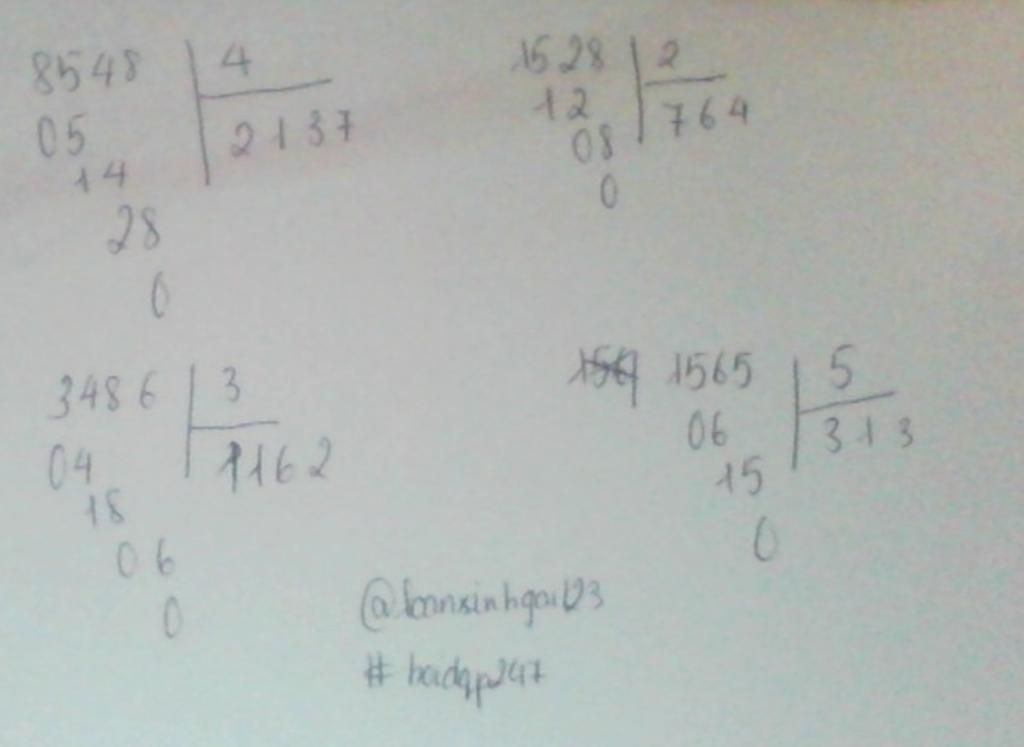 8548 4
05 2137
14
28
0
1528 2
12 764
08
0
3486 3
04 1162
18
06
0
1565 5
06 313
15
0